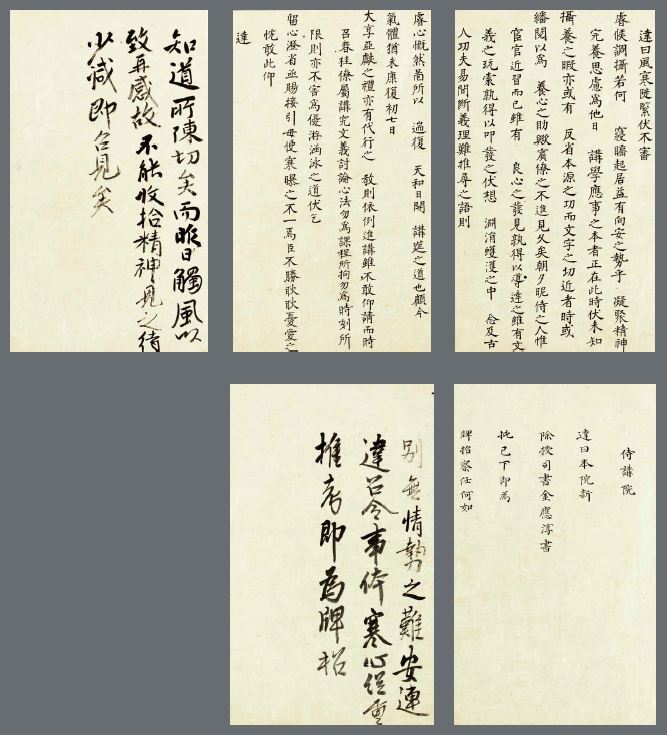 達曰風寒陡緊伏不審
睿候調攝若何 寢膳起居益有向安之勢乎 凝聚精神
完養思慮爲他日 講學應事之本者正在此時伏未知
攝養之暇亦或有 反省本源之功而文字之切近者時或
繙閱以爲 養心之助歟賓僚之不進見久矣朝夕昵侍之人惟
宦官近習而已雖有 良心之發見孰得以導達之雖有文
義之玩索孰得以叩發之伏想 淵涓蠖濩之中 念及古
人功夫易間斷義理難推尋之語則
睿心慨然所以 遄復 天和日開 講筵之道也顧今
氣體猶未康復初七日
大享亞獻之禮亦有代行之 敎則依例進講雖不敢仰請而時
召春桂僚屬講究文義討論心法勿爲課程所拘勿爲時刻所
限則亦不害爲優游涵泳之道伏乞
留心澄省亟賜接引毋使寒曝之不一焉臣不勝耿耿憂愛之
忱敢此仰
達
知道所陳切矣而昨日觸風以
致再感故不能收拾精神見之待
少減即召見矣
侍講院
達曰本院新
除授司書金應淳書
批已下即爲
牌招察任何如
別無情勢之難安連
違召令事体寒心從重
推考即爲牌招